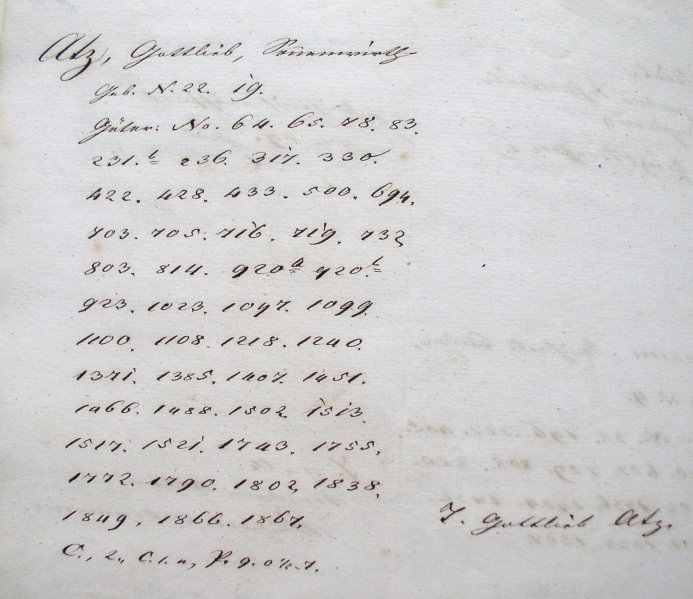 Atz, Gottlieb, Sonnenwirth
Geb. N. 22. 19.
Güter: No. 64. 65. 78. 83.
231.b 236. 317. 330.
422. 428. 433. 500. 694.
703. 705. 716. 719. 732
803. 814. 920a 920.b
923. 1023. 1097. 1099.
1100. 1108. 1218. 1240.
1371. 1385. 1407. 1451.
1466. 1488. 1502 1513.
1517. 1521. 1743. 1755.
1772. 1790. 1802 1838.
1849. 1866. 1867.
T. Gottlieb Atz.